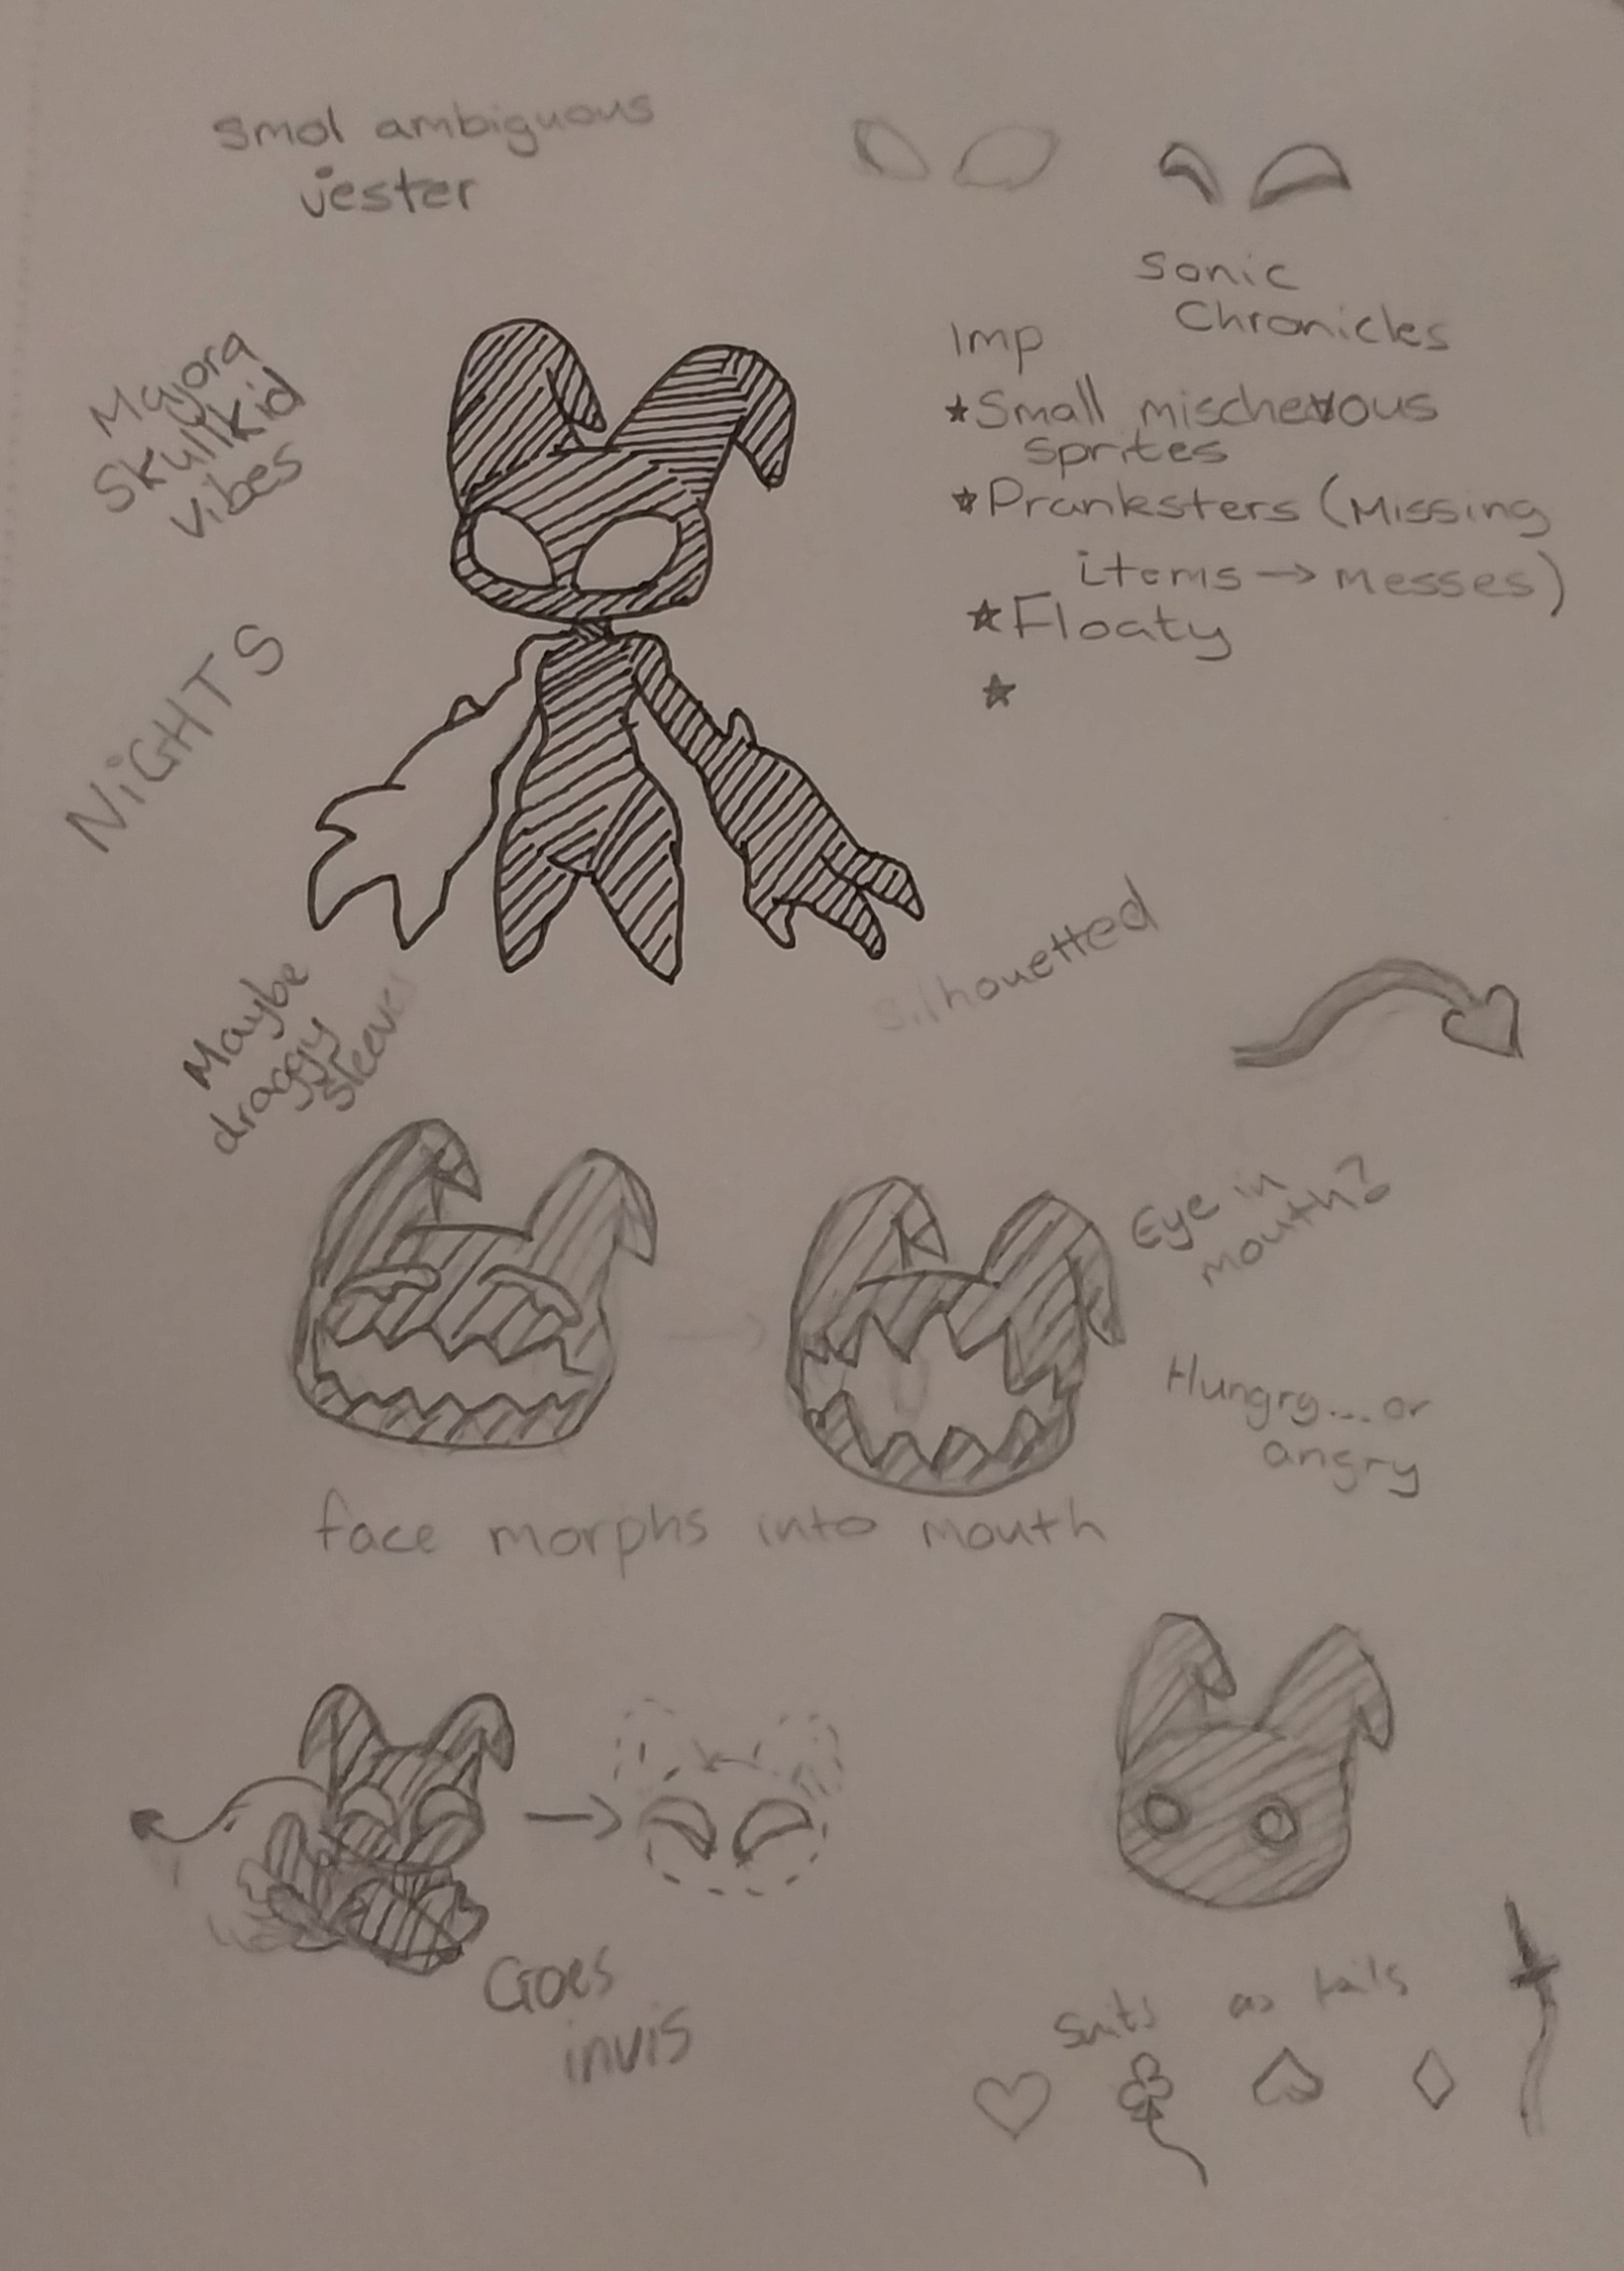 smol ambiguous
jester
Sonic
Chronicles
Majora
Skullkid
vibes
Imp
★Small mischevous
sprites
★Pranksters (Missing
items → messes)
★Floaty
★
NiGHTS
silhouetted
Maybe
draggy
sleeves
Eye in
mouth?
Hungry... or
angry
face morphs into mouth
Goes
invis
Suits as tails